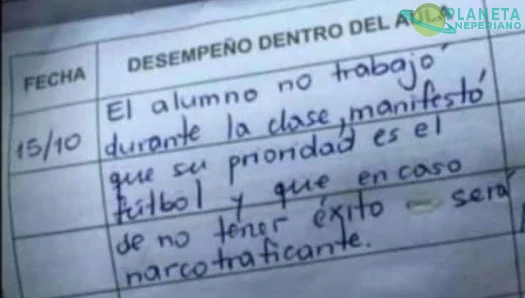 PLANETA
NEPERIANO
FECHA
DESEMPEÑO DENTRO DEL AULA
15/10
El alumno no trabajó
durante la clase, manifestó
que su prioridad es el
fútbol y que en caso
de no tener éxito será
narcotraficante.